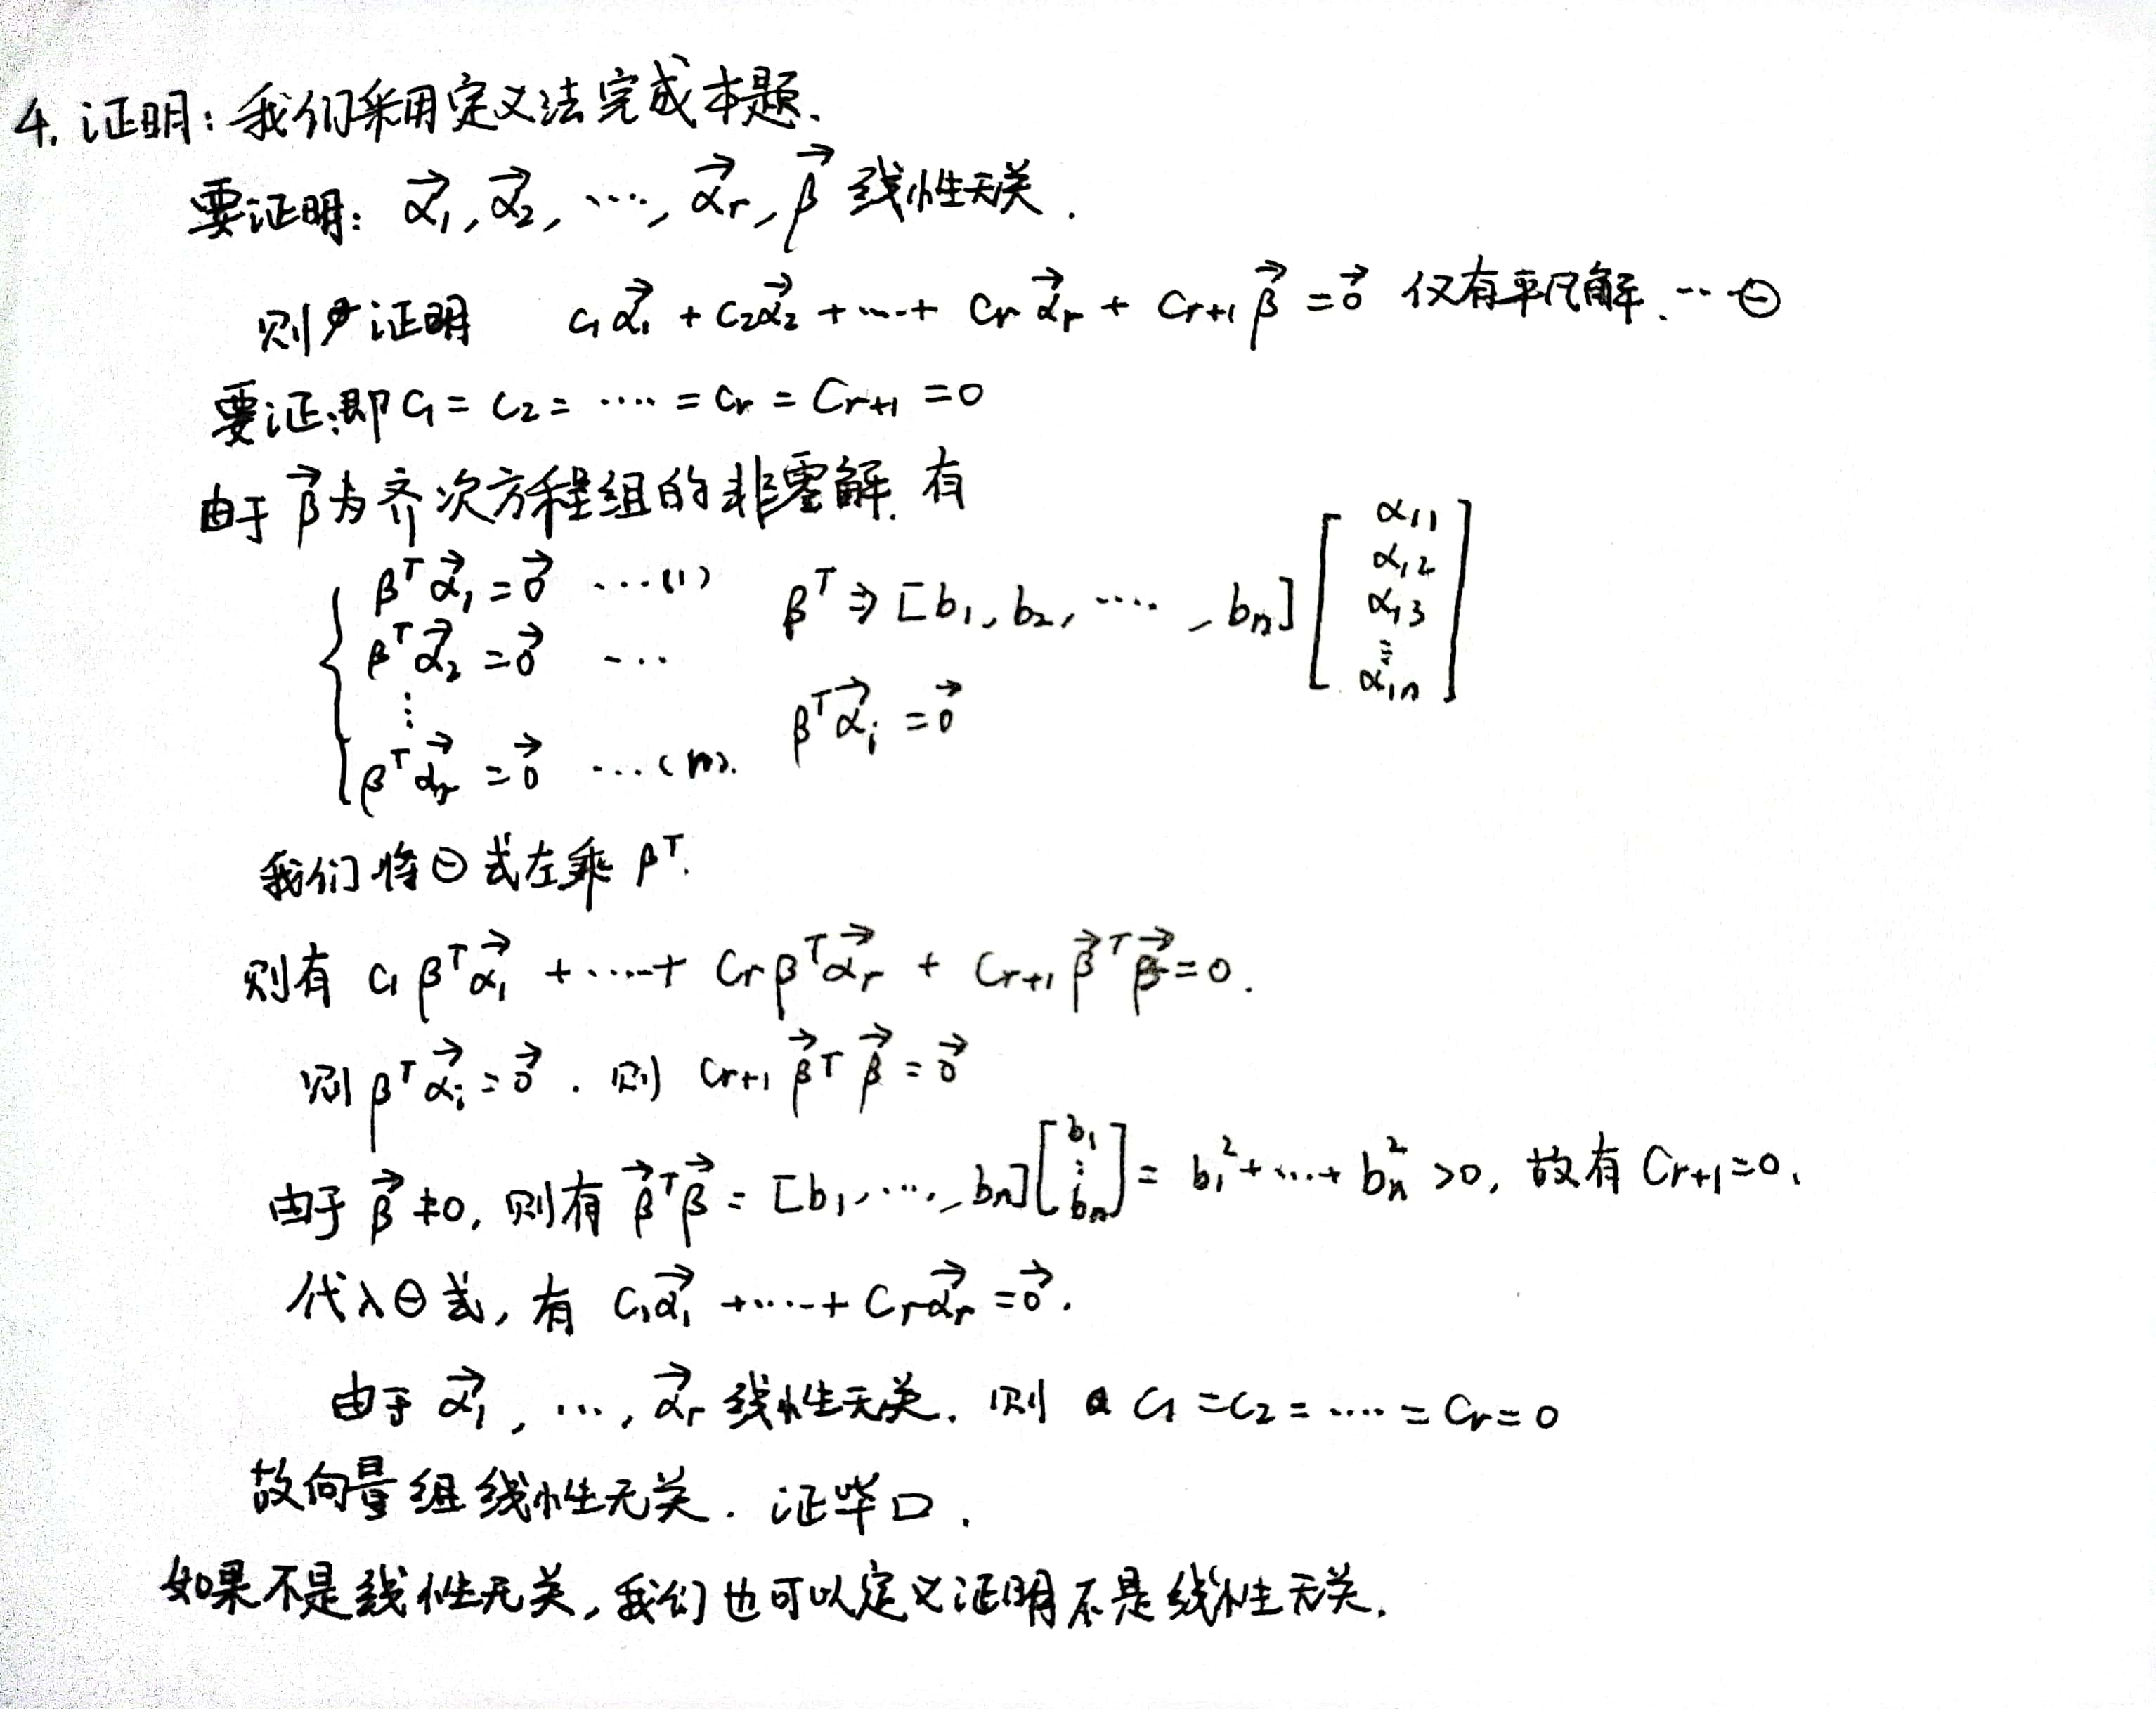 4. 证明：我们采用定义法完成本题.
要证明: α⃗₁, α⃗₂, ⋯, α⃗ᵣ, β⃗ 线性无关.
则 证明 c₁α⃗₁ + c₂α⃗₂ + ⋯ + cᵣα⃗ᵣ + cᵣ₊₁β⃗ = 0⃗ 仅有平凡解. ⋯ ⊖
要证:即 c₁ = c₂ = ⋯ = cᵣ = cᵣ₊₁ = 0
由于 β⃗ 为齐次方程组的非零解. 有
{ βᵀα⃗₁ = 0⃗ ⋯(1) βᵀ ⇒ [b₁, b₂, ⋯, bₙ] [α₁₁ α₁₂ α₁₃ ⋮ α₁ₙ]
βᵀα⃗₂ = 0⃗ ⋯
⋮ βᵀα⃗ᵢ = 0⃗
βᵀα⃗ᵣ = 0⃗ ⋯(m).
我们将⊖式左乘 βᵀ.
则有 c₁βᵀα⃗₁ + ⋯ + cᵣβᵀα⃗ᵣ + cᵣ₊₁β⃗ᵀβ⃗ = 0.
则 βᵀα⃗ᵢ = 0⃗. 则 cᵣ₊₁β⃗ᵀβ⃗ = 0⃗
由于 β⃗ ≠ 0, 则有 β⃗ᵀβ⃗ = [b₁, ⋯, bₙ] [b₁ ⋮ bₙ] = b₁² + ⋯ + bₙ² > 0, 故有 cᵣ₊₁ = 0.
代入⊖式, 有 c₁α⃗₁ + ⋯ + cᵣα⃗ᵣ = 0⃗.
由于 α⃗₁, ⋯, α⃗ᵣ 线性无关. 则 c₁ = c₂ = ⋯ = cᵣ = 0
故向量组线性无关. 证毕 □.
如果不是线性无关, 我们也可以定义证明不是线性无关.